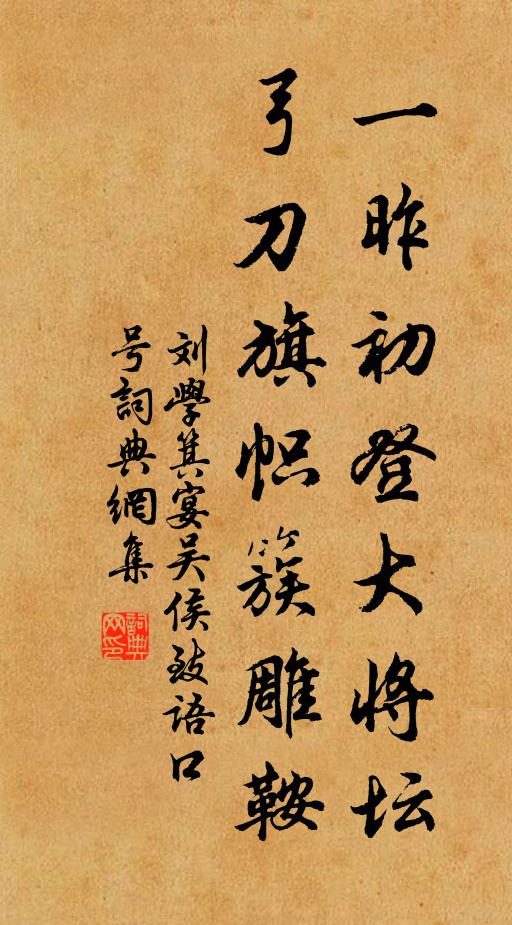 一昨初登大将坛
弓刀旗帜簇雕鞍
刘学箕宴吴侯致语口
号詞典網集
詞典网印